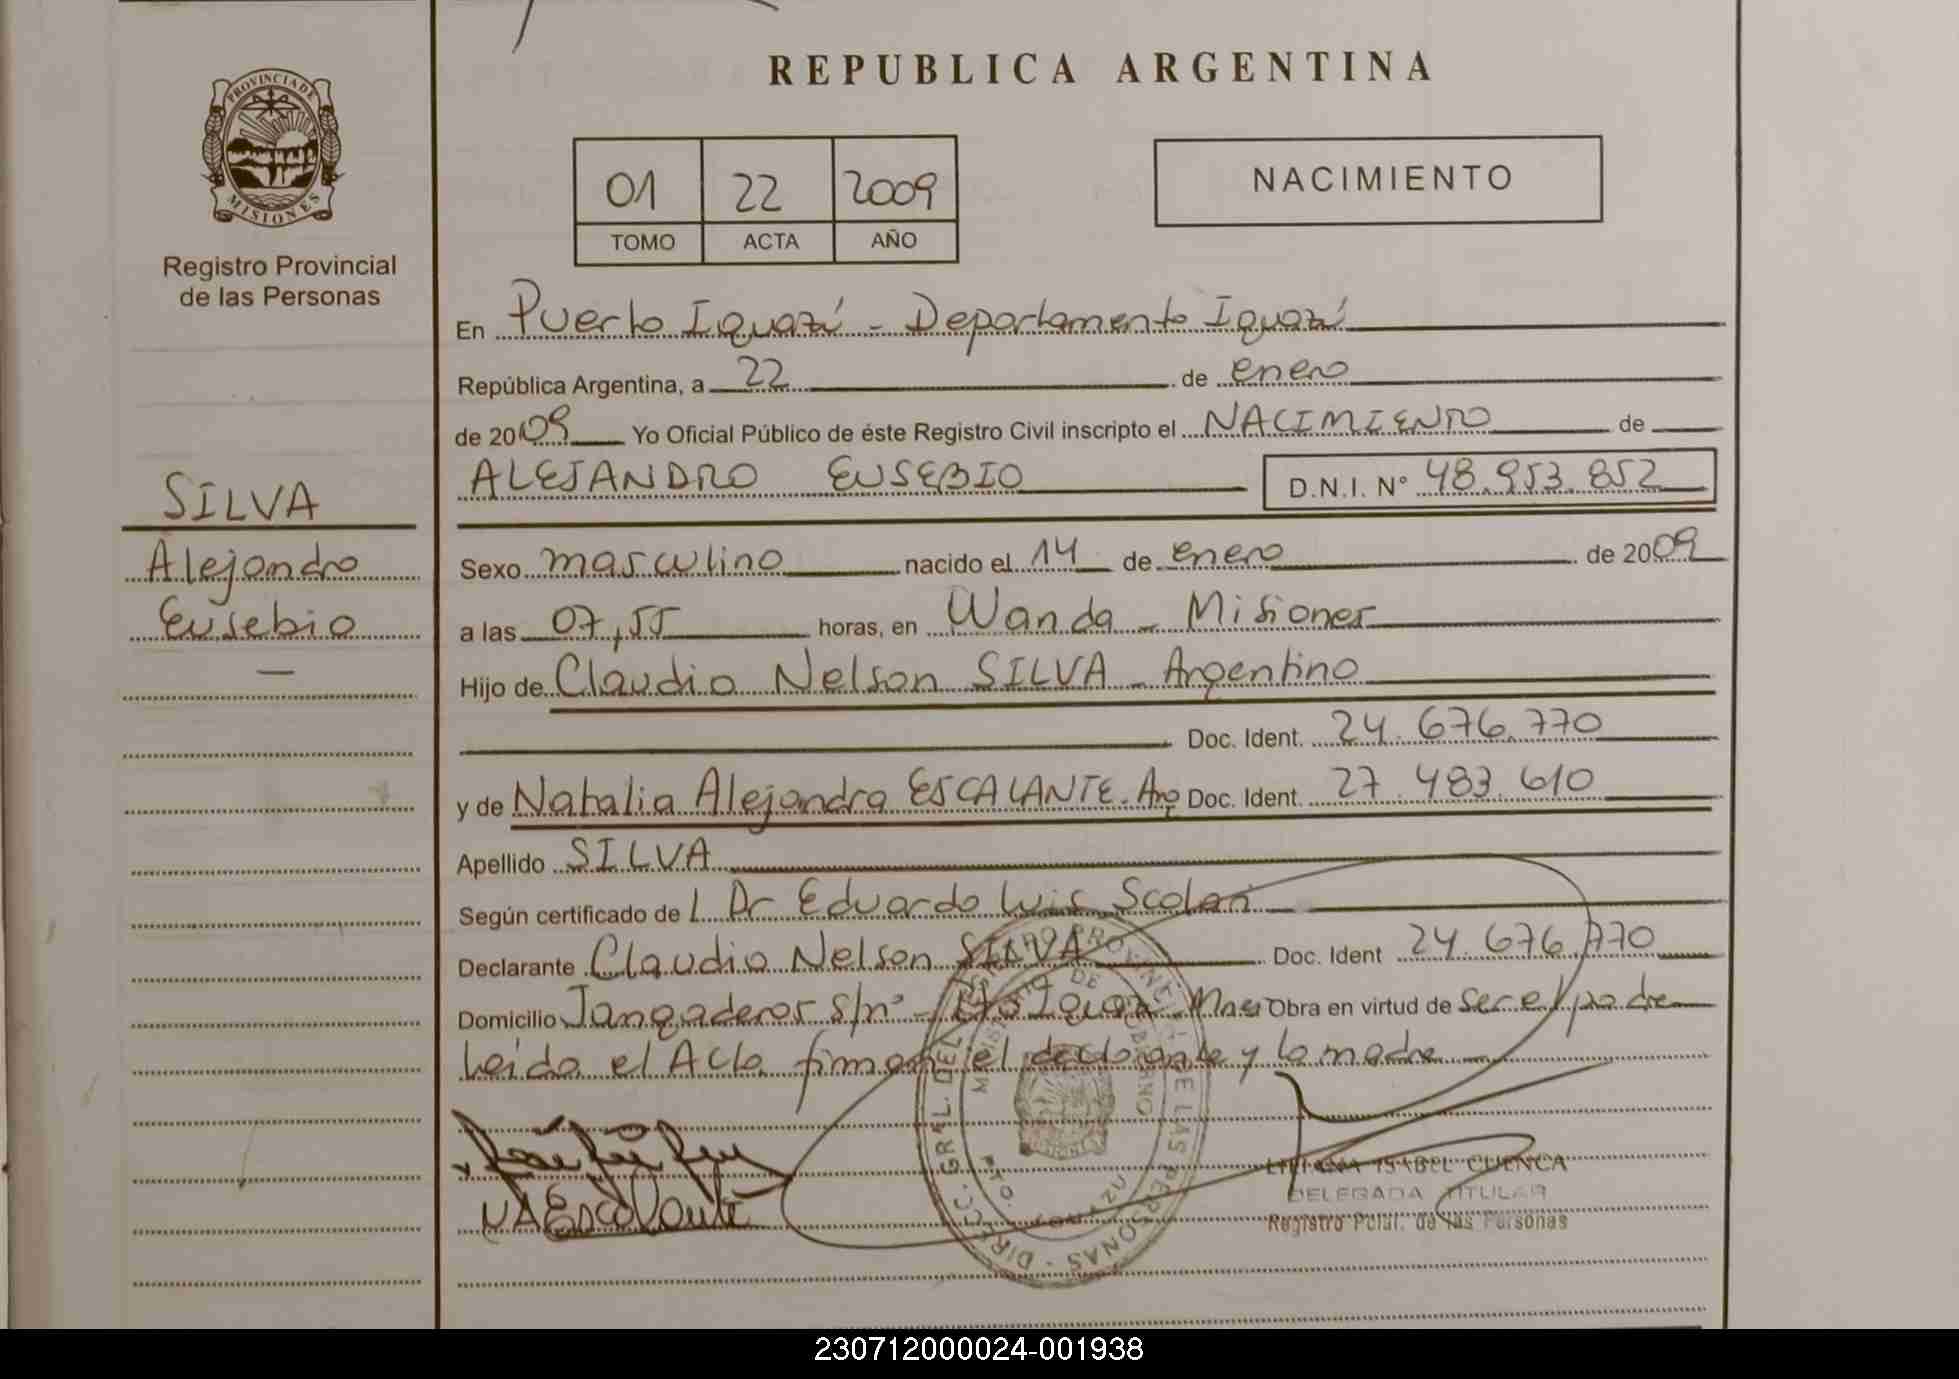 PROVINCIA DE
MISIONES
Registro Provincial
de las Personas
SILVA
Alejandro
Eusebio
REPUBLICA ARGENTINA
01 22 2009
TOMO ACTA AÑO
NACIMIENTO
En Puerto Iguazú - Departamento Iguazú
República Argentina, a 22 de enero
de 2009 Yo Oficial Público de éste Registro Civil inscripto el NACIMIENTO de
ALEJANDRO EUSEBIO D.N.I. N° 48.953.852
Sexo masculino nacido el 14 de enero de 2009
a las 07,55 horas, en Wanda - Misiones
Hijo de Claudio Nelson SILVA - Argentino
Doc. Ident. 24.676.770
y de Natalia Alejandra ESCALANTE. Arg Doc. Ident. 27.483.610
Apellido SILVA
Según certificado de Dr Eduardo Luis Scolari
Declarante Claudio Nelson SILVA Doc. Ident 24.676.770
Domicilio Jangaderos s/n° - Pto Iguazú Mnes Obra en virtud de ser el padre
Leída el Acta firman el declarante y la madre
NAEscalante
LILIANA ISABEL CUENCA
DELEGADA TITULAR
Registro Pcial. de las Personas
DIRECC. GRAL. DEL REGISTRO PROVINCIAL DE LAS PERSONAS
MINISTERIO DE GOBIERNO
PTO. IGUAZU
230712000024-001938